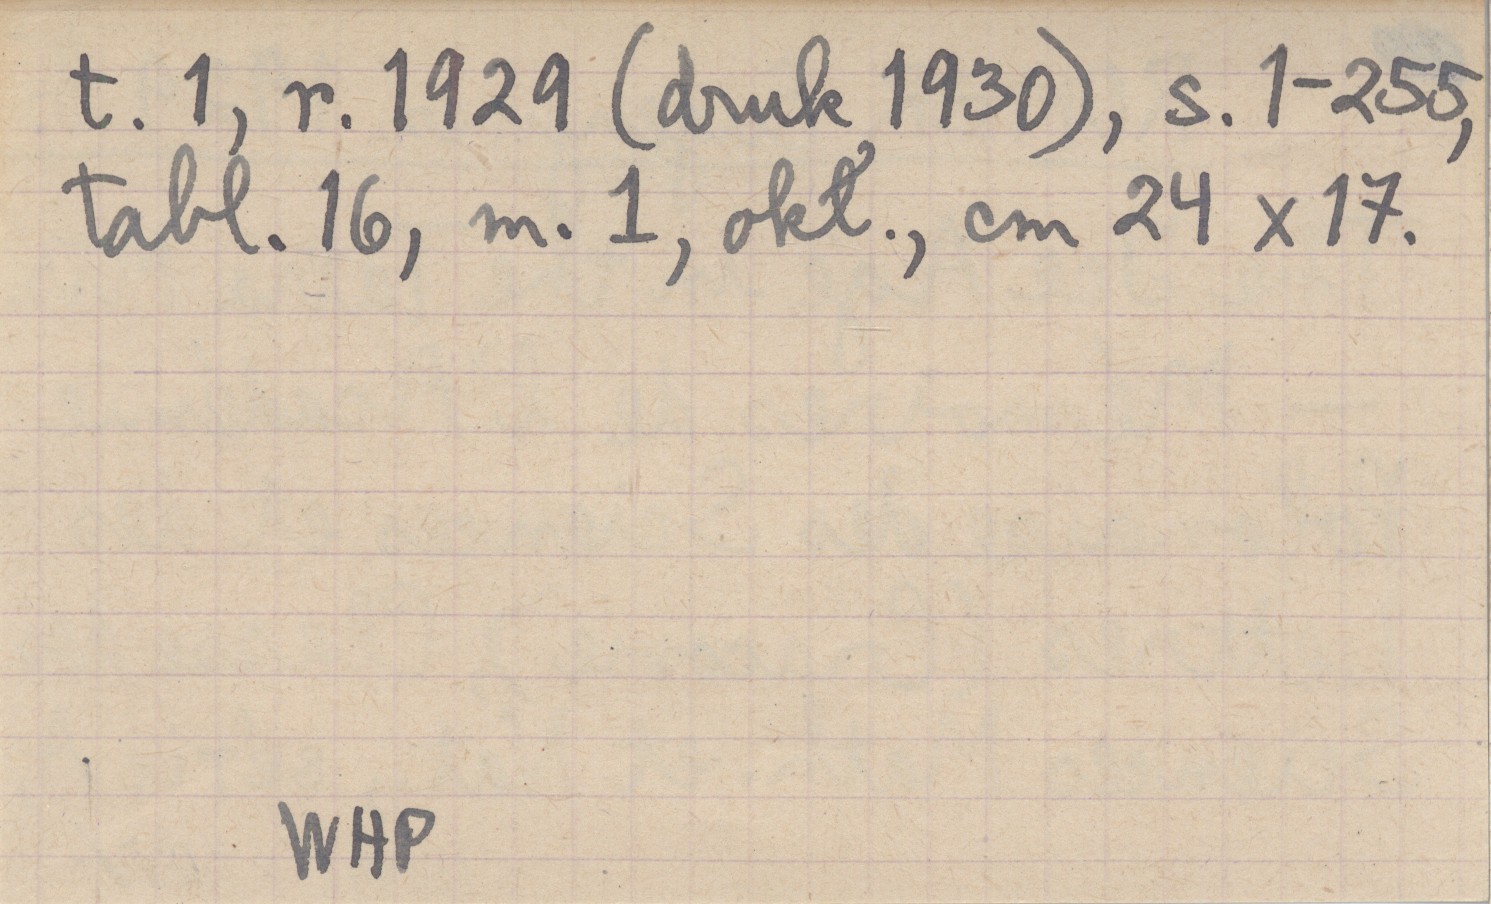 t. 1, r. 1929 (druk 1930), s. 1-255,
tabl. 16, m. 1, okt., cm 24 x 17.
WHP